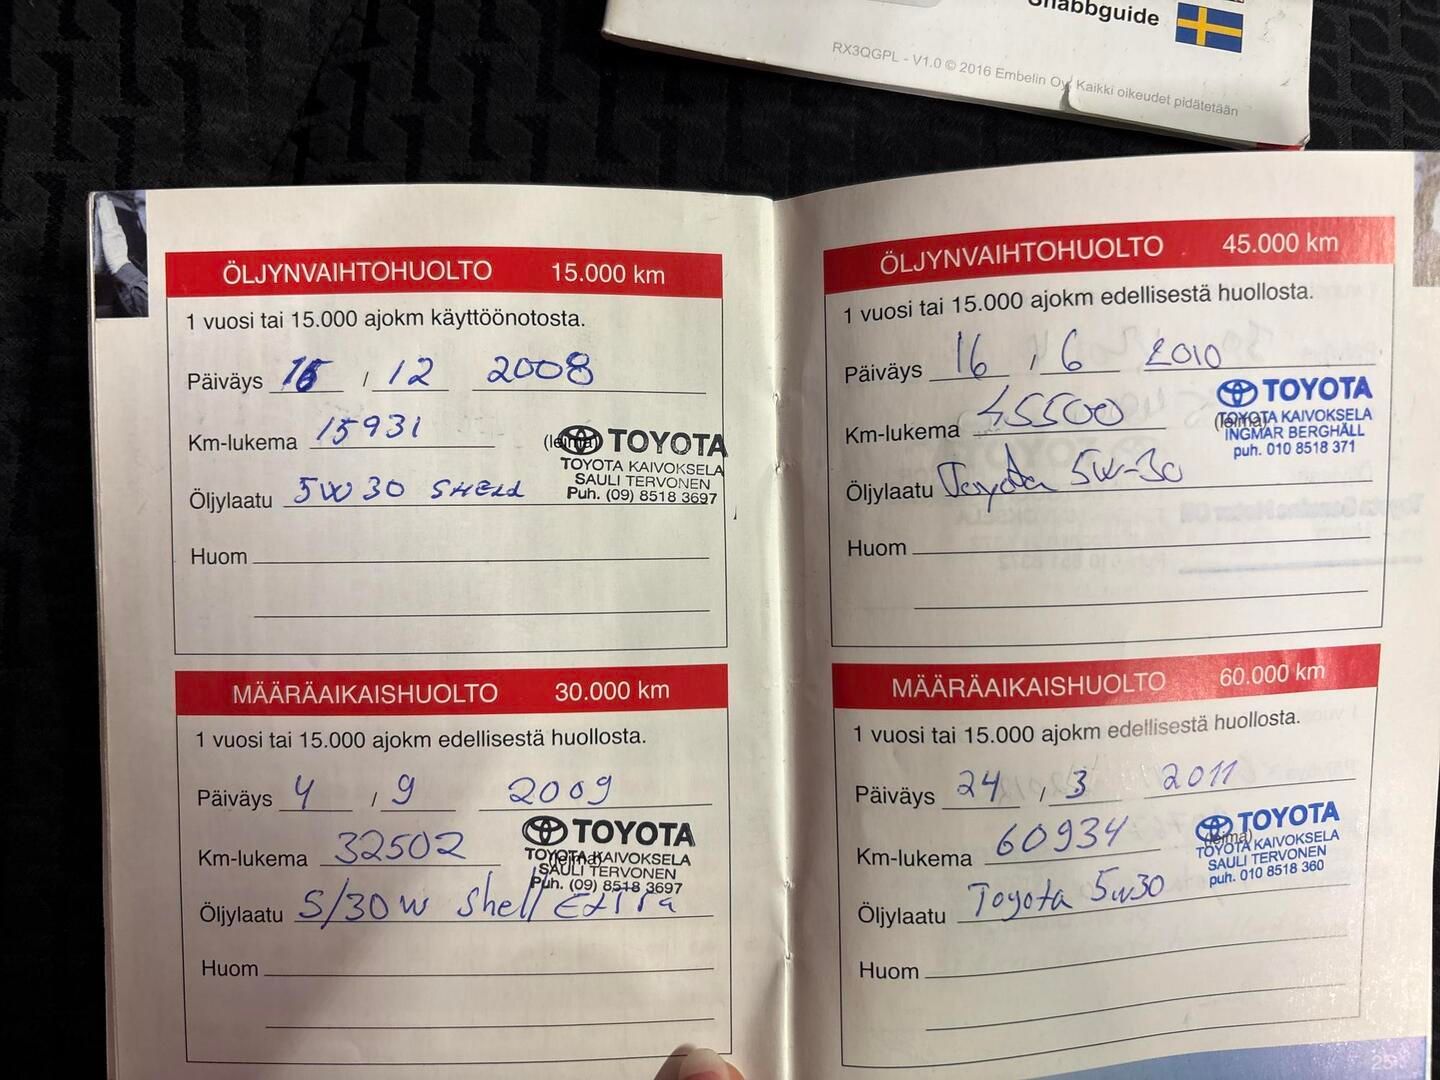 Snabbguide
RX3QGPL - V1.0 © 2016 Embelin Oy, Kaikki oikeudet pidätetään
ÖLJYNVAIHTOHUOLTO 15.000 km
1 vuosi tai 15.000 ajokm käyttöönotosta.
Päiväys 16 / 12 2008
Km-lukema 15931
(leima)
TOYOTA
TOYOTA KAIVOKSELA
SAULI TERVONEN
Puh. (09) 8518 3697
Öljylaatu 5W30 SHELL
Huom
MÄÄRÄAIKAISHUOLTO 30.000 km
1 vuosi tai 15.000 ajokm edellisestä huollosta.
Päiväys 4 / 9 2009
Km-lukema 32502
(leima)
TOYOTA
TOYOTA KAIVOKSELA
SAULI TERVONEN
Puh. (09) 8518 3697
Öljylaatu 5/30W Shell Extra
Huom
ÖLJYNVAIHTOHUOLTO 45.000 km
1 vuosi tai 15.000 ajokm edellisestä huollosta.
Päiväys 16 / 6 2010
Km-lukema 45500
(leima)
TOYOTA
TOYOTA KAIVOKSELA
INGMAR BERGHÄLL
puh. 010 8518 371
Öljylaatu Toyota 5W-30
Huom
MÄÄRÄAIKAISHUOLTO 60.000 km
1 vuosi tai 15.000 ajokm edellisestä huollosta.
Päiväys 24 / 3 2011
Km-lukema 60934
(leima)
TOYOTA
TOYOTA KAIVOKSELA
SAULI TERVONEN
puh. 010 8518 360
Öljylaatu Toyota 5w30
Huom
25